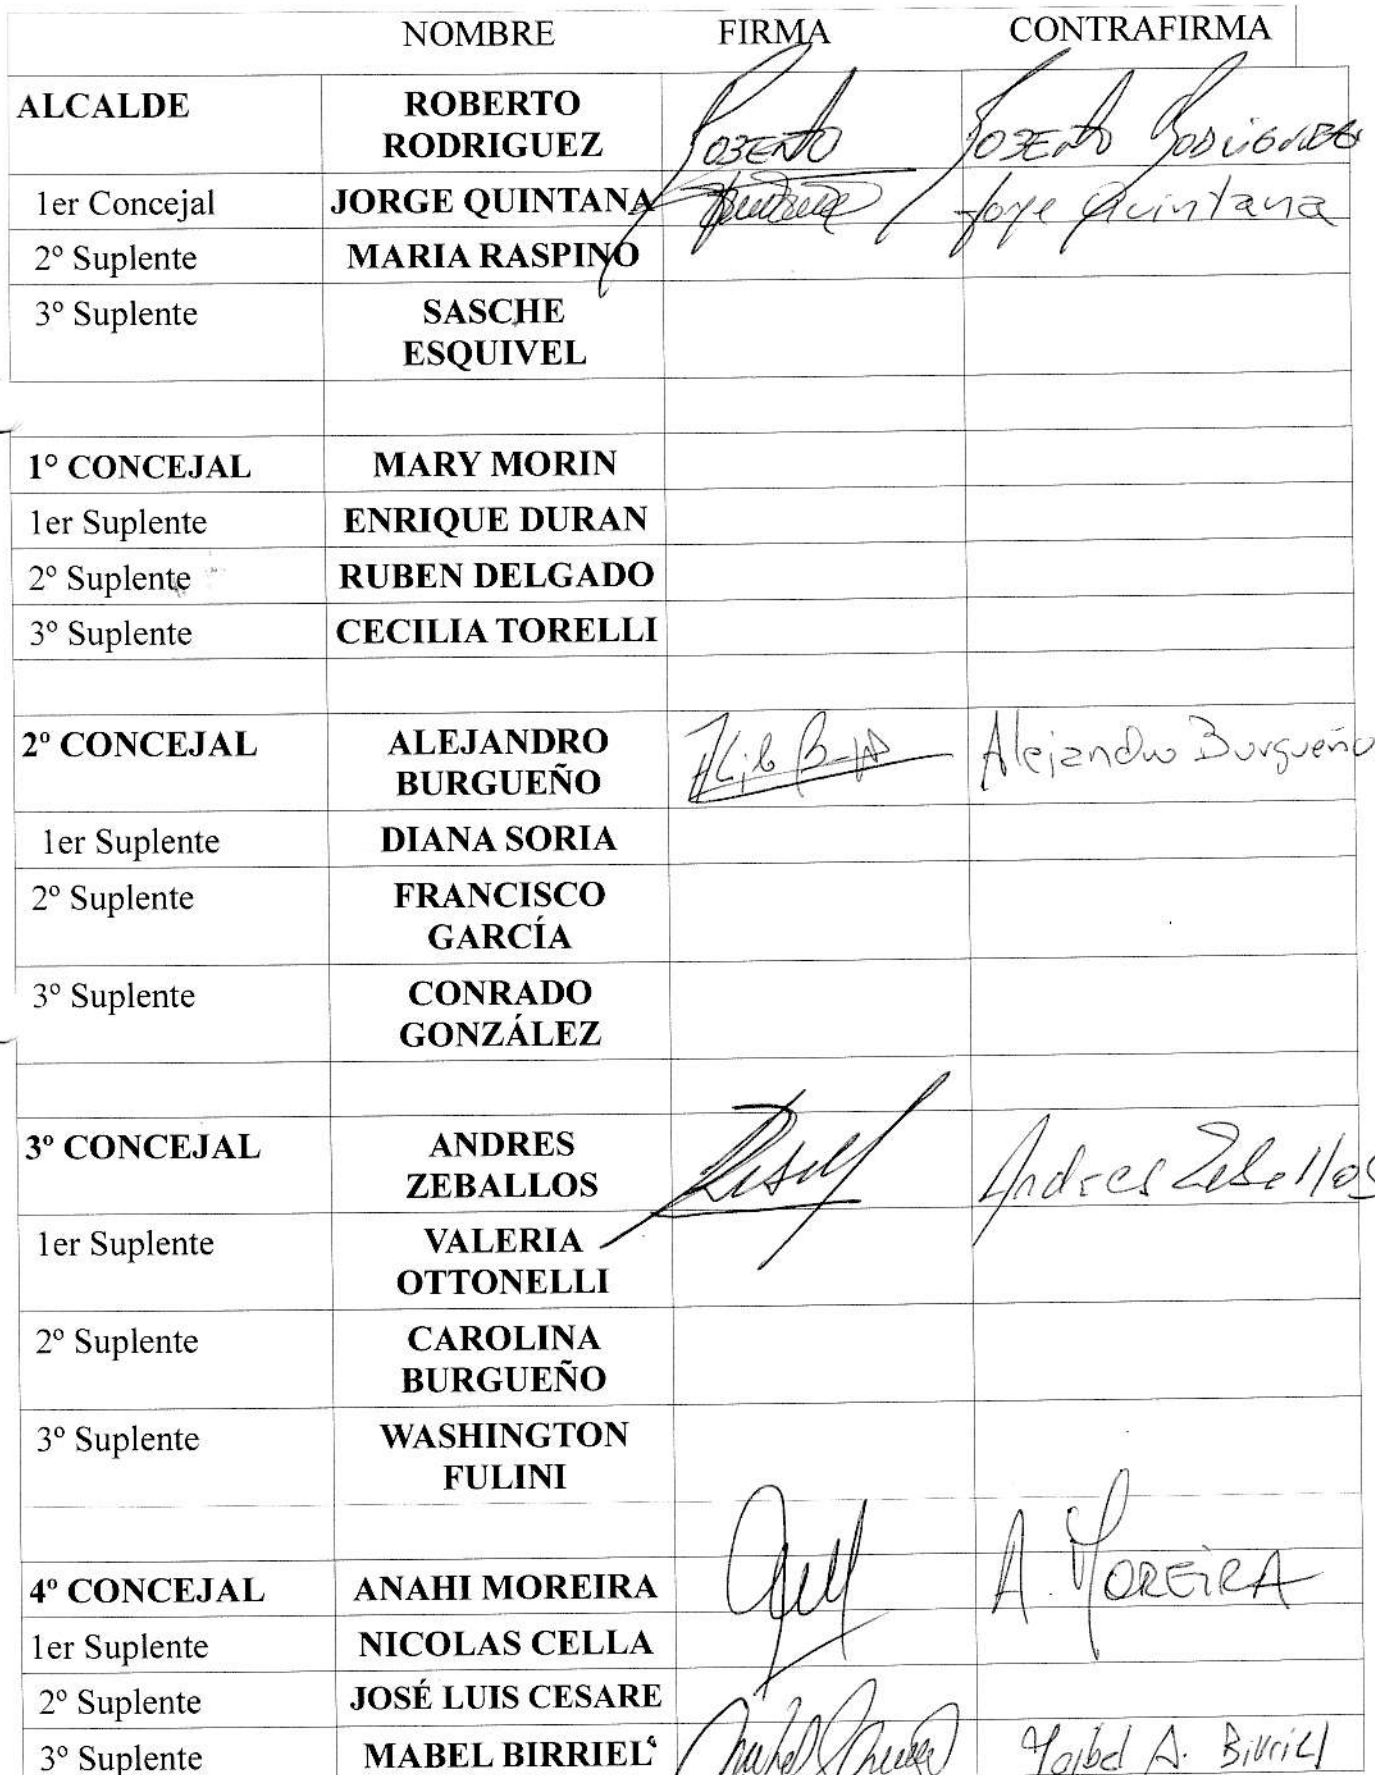 NOMBRE FIRMA CONTRAFIRMA
ALCALDE ROBERTO RODRIGUEZ Roberto Roberto Rodriguez
1er Concejal JORGE QUINTANA Jorge Quintana
2º Suplente MARIA RASPINO
3º Suplente SASCHE ESQUIVEL
1º CONCEJAL MARY MORIN
1er Suplente ENRIQUE DURAN
2º Suplente RUBEN DELGADO
3º Suplente CECILIA TORELLI
2º CONCEJAL ALEJANDRO BURGUEÑO Alejandro Burgueño
1er Suplente DIANA SORIA
2º Suplente FRANCISCO GARCÍA
3º Suplente CONRADO GONZÁLEZ
3º CONCEJAL ANDRES ZEBALLOS Andres Zeballos
1er Suplente VALERIA OTTONELLI
2º Suplente CAROLINA BURGUEÑO
3º Suplente WASHINGTON FULINI
4º CONCEJAL ANAHI MOREIRA A. MOREIRA
1er Suplente NICOLAS CELLA
2º Suplente JOSÉ LUIS CESARE
3º Suplente MABEL BIRRIEL Mabel A. Birriel